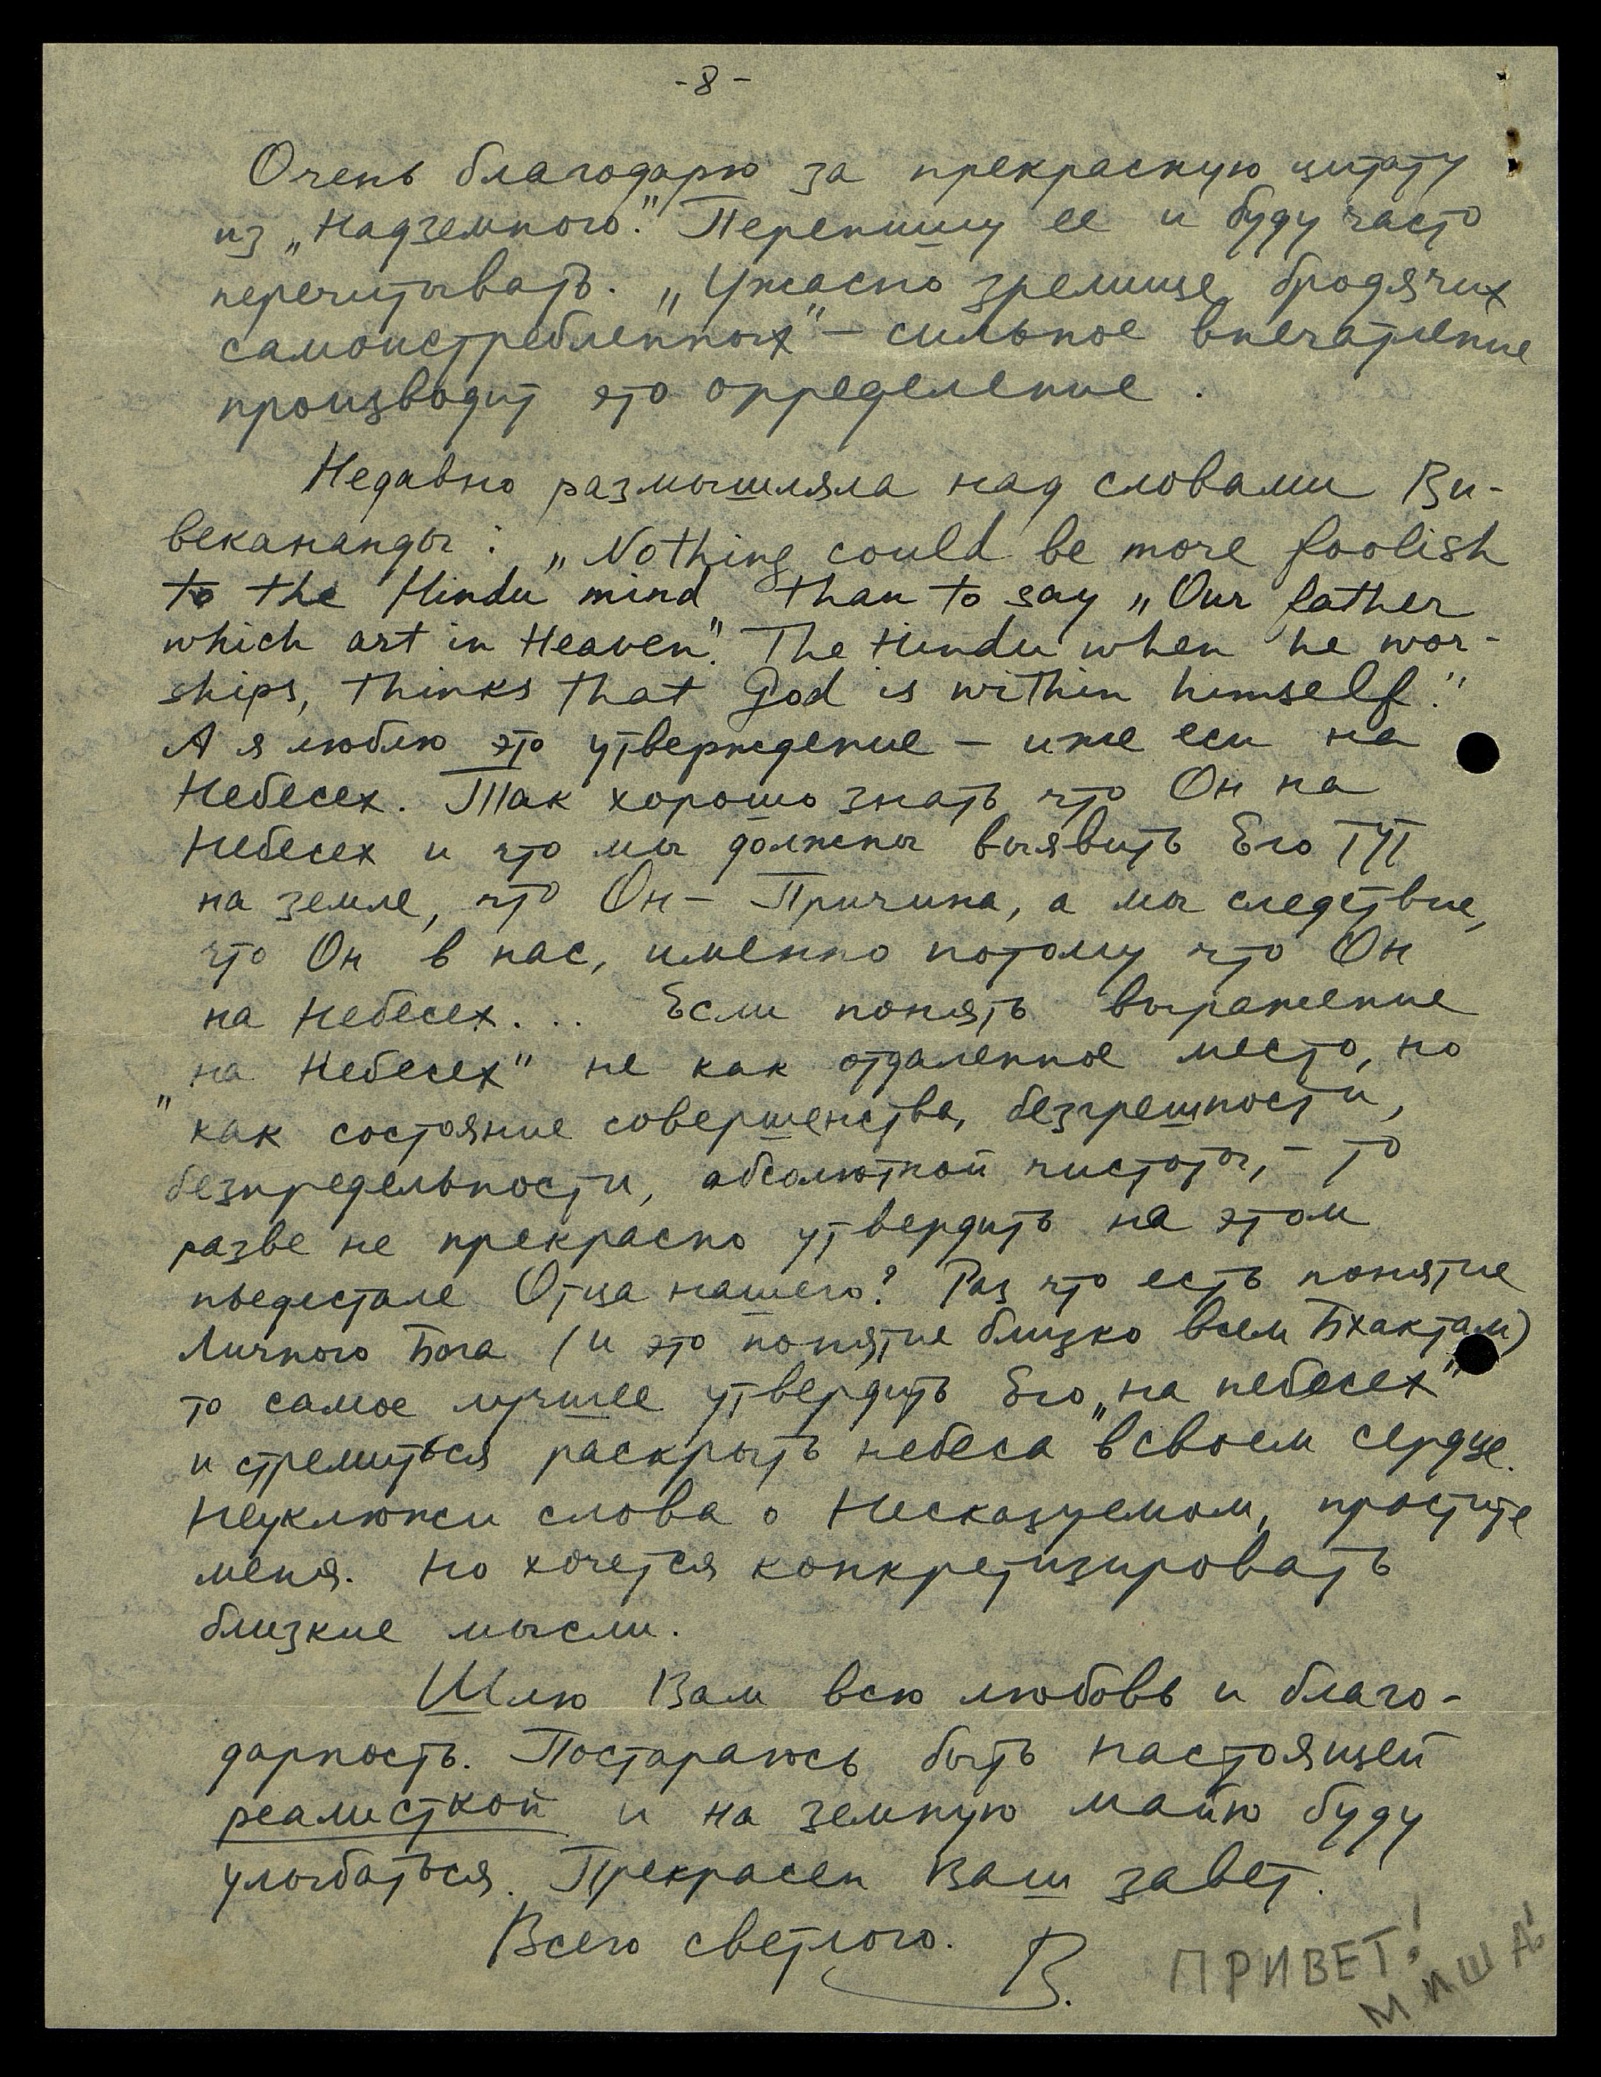 -8-
Очень благодарю за прекрасную цитату
из „Надземного." Перепишу ее и буду часто
перечитывать. „Ужасно зрелище бродячих
самоистребленных" – сильное впечатление
производит это определение.
Недавно размышляла над словами Ви-
веканады: „Nothing could be more foolish
to the Hindu mind than to say „Our father
which art in Heaven". The Hindu when he wor-
ships, thinks that God is within himself."
А я люблю это утверждение – иже еси на
Небесех. Так хорошо знать что Он на
Небесех и что мы должны выявить Его тут
на земле, что Он – Причина, а мы следствие,
что Он в нас, именно потому что Он
на Небесех... Если понять выражение
„на Небесех" не как отдаленное место, но
как состояние совершенства, безгрешности,
безпредельности, абсолютной чистоты, – то
разве не прекрасно утвердить на этом
пьедестале Отца нашего? Раз что есть понятие
Личного Бога (и это понятие близко всем Бхактам)
то самое лучшее утвердить Его „на небесех"
и стремиться раскрыть небеса в своем сердце.
Неуклюжи слова о Несказуемом, простите
меня. Но хочется конкретизировать
близкие мысли.
Шлю Вам всю любовь и благо-
дарность. Постараюсь быть настоящей
реалисткой и на земную майю буду
улыбаться. Прекрасен Ваш завет.
Всего светлого. В.
ПРИВЕТ!
МИША!